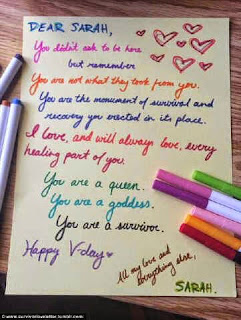 DEAR SARAH,
You didn't ask to be here
but remember
You are not what they took from you.
You are the monument of survival and
recovery you erected in its place.
I love, and will always love, every
healing part of you.
You are a queen.
You are a goddess.
You are a survivor.
Happy V-day
All my love and
everything else,
SARAH.
© www.survivorloveletter.tumblr.com